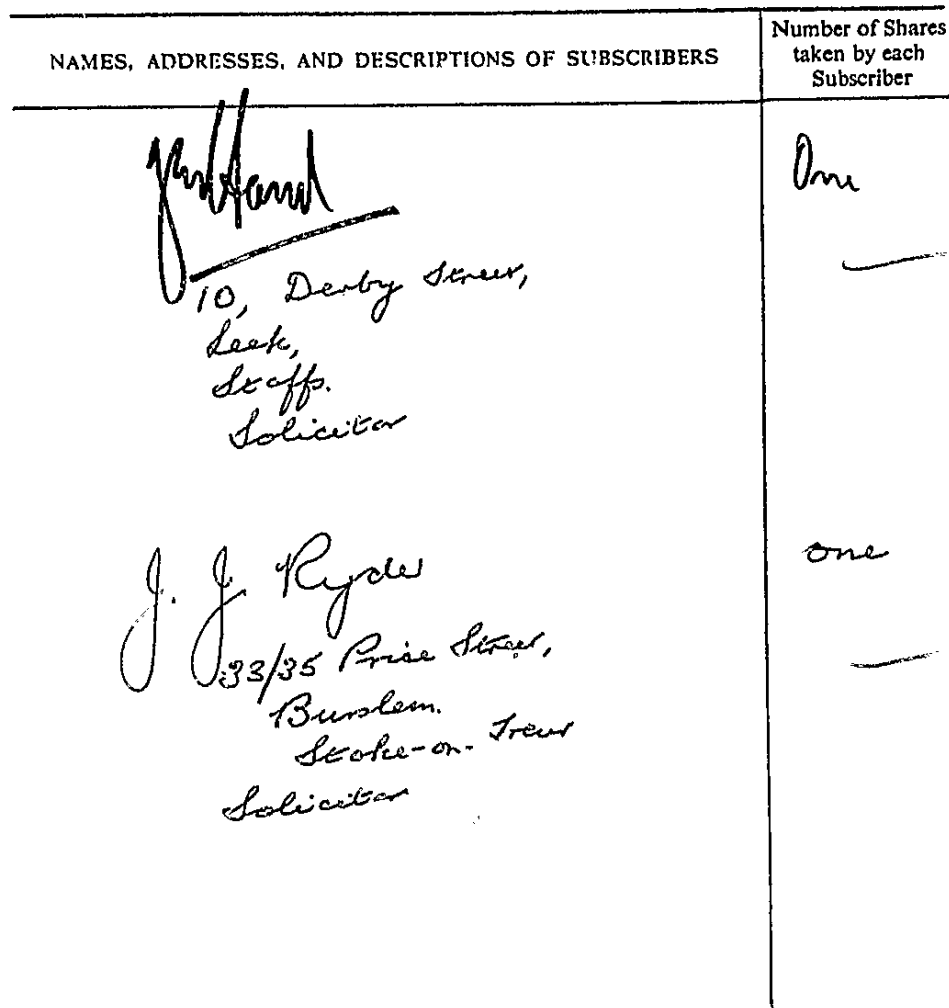 NAMES, ADDRESSES, AND DESCRIPTIONS OF SUBSCRIBERS
Number of Shares
taken by each
Subscriber
Hand
One
10, Derby Street,
Leek,
Staffs.
Solicitor
J. J. Ryder
one
33/35 Price Street,
Burslem.
Stoke-on-Trent
Solicitor